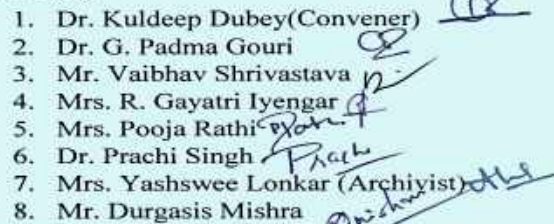 1. Dr. Kuldeep Dubey(Convener)
2. Dr. G. Padma Gouri
3. Mr. Vaibhav Shrivastava
4. Mrs. R. Gayatri Iyengar
5. Mrs. Pooja Rathi
6. Dr. Prachi Singh Prachi
7. Mrs. Yashswee Lonkar (Archivist)
8. Mr. Durgasis Mishra